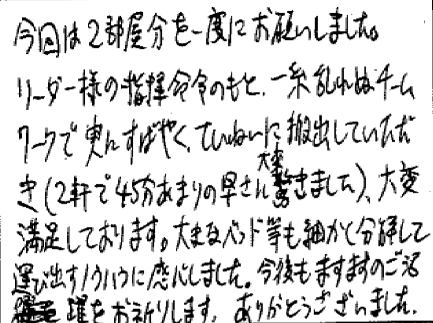 今回は2部屋分を一度にお願いしました。
リーダー様の指揮命令のもと、一糸乱れぬチーム
ワークで実にすばやく、ていねいに搬出していただ
き(2軒で45分あまりの早さに大変驚きました)、大変
満足しております。大きなベッド等も細かく分解して
運び出すノウハウに感心しました。今後もますますのご活
躍をお祈りします。ありがとうございました。